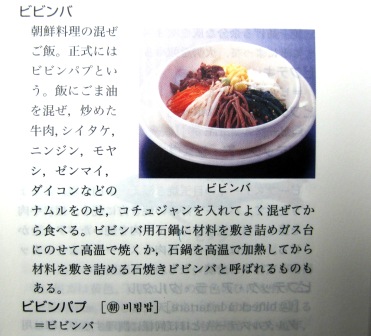 ビビンバ
朝鮮料理の混ぜ
ご飯。正式には
ビビンパプとい
う。飯にごま油
を混ぜ，炒めた
牛肉，シイタケ，
ニンジン，モヤ
シ，ゼンマイ，
ダイコンなどの
ビビンバ
ナムルをのせ，コチュジャンを入れてよく混ぜてか
ら食べる。ビビンバ用石鍋に材料を敷き詰めガス台
にのせて高温で焼くか，石鍋を高温で加熱してから
材料を敷き詰める石焼きビビンバと呼ばれるものも
ある。
ビビンパプ [朝 비빔밥]
＝ビビンバ